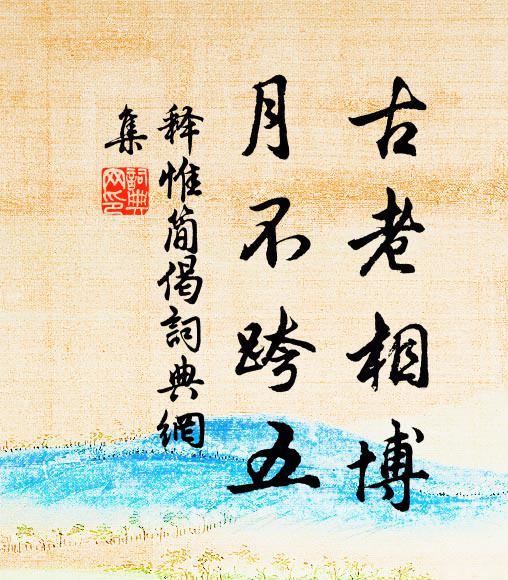 古老相博
月不跨五
释惟简偈詞典網
集
詞典网印